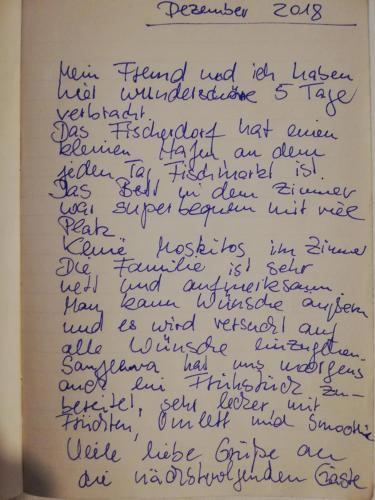 Dezember 2018
Mein Freund und ich haben
hier wunderschöne 5 Tage
verbracht.
Das Fischerdorf hat einen
kleinen Hafen an dem
jeden Tag Fischmarkt ist.
Das Bett in dem Zimmer
war superbequem mit viel
Platz.
Keine Moskitos im Zimmer
Die Familie ist sehr
nett und aufmerksam.
Man kann Wünsche äußern
und es wird versucht auf
alle Wünsche einzugehen.
hat uns morgens
auch ein Frühstück zu-
bereitet, sehr lecker mit
Früchten, Omlett und Smoothie
Viele liebe Grüße an
die nächstvolgenden Gäste